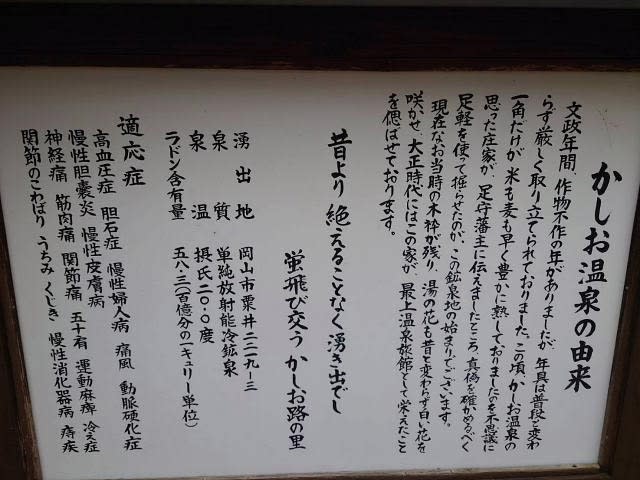 かしお温泉の由来
文政年間、作物不作の年がありましたが、年具は普段と変わ
らず厳しく取り立てられておりました。この頃、かしお温泉の
一角だけが、米も麦も早く豊かに熟しておりましたのを不思議に
思った庄家が、足守藩主に伝えましたところ、真偽を確かめるべく
足軽を使って掘らせたのが、この鉱泉地の始まりでございます。
現在なお当時の木枠が残り、湯の花も昔と変わらず白い花を
咲かせ、大正時代にはこの家が、最上温泉旅館として栄えたこと
を偲ばせております。
昔より 絶えることなく湧き出でし
蛍飛び交う かしお路の里
湧出地 岡山市粟井二二一九-三
泉質 単純放射能冷鉱泉
泉温 摂氏二〇・〇度
ラドン含有量 五八・三(百億分の一キュリー単位)
適応症
高血圧症 胆石症 慢性婦人病 痛風 動脈硬化症
慢性胆嚢炎 慢性皮膚病
神経痛 筋肉痛 関節痛 五十肩 運動麻痺 冷え症
関節のこわばり うちみ くじき 慢性消化器病 痔疾